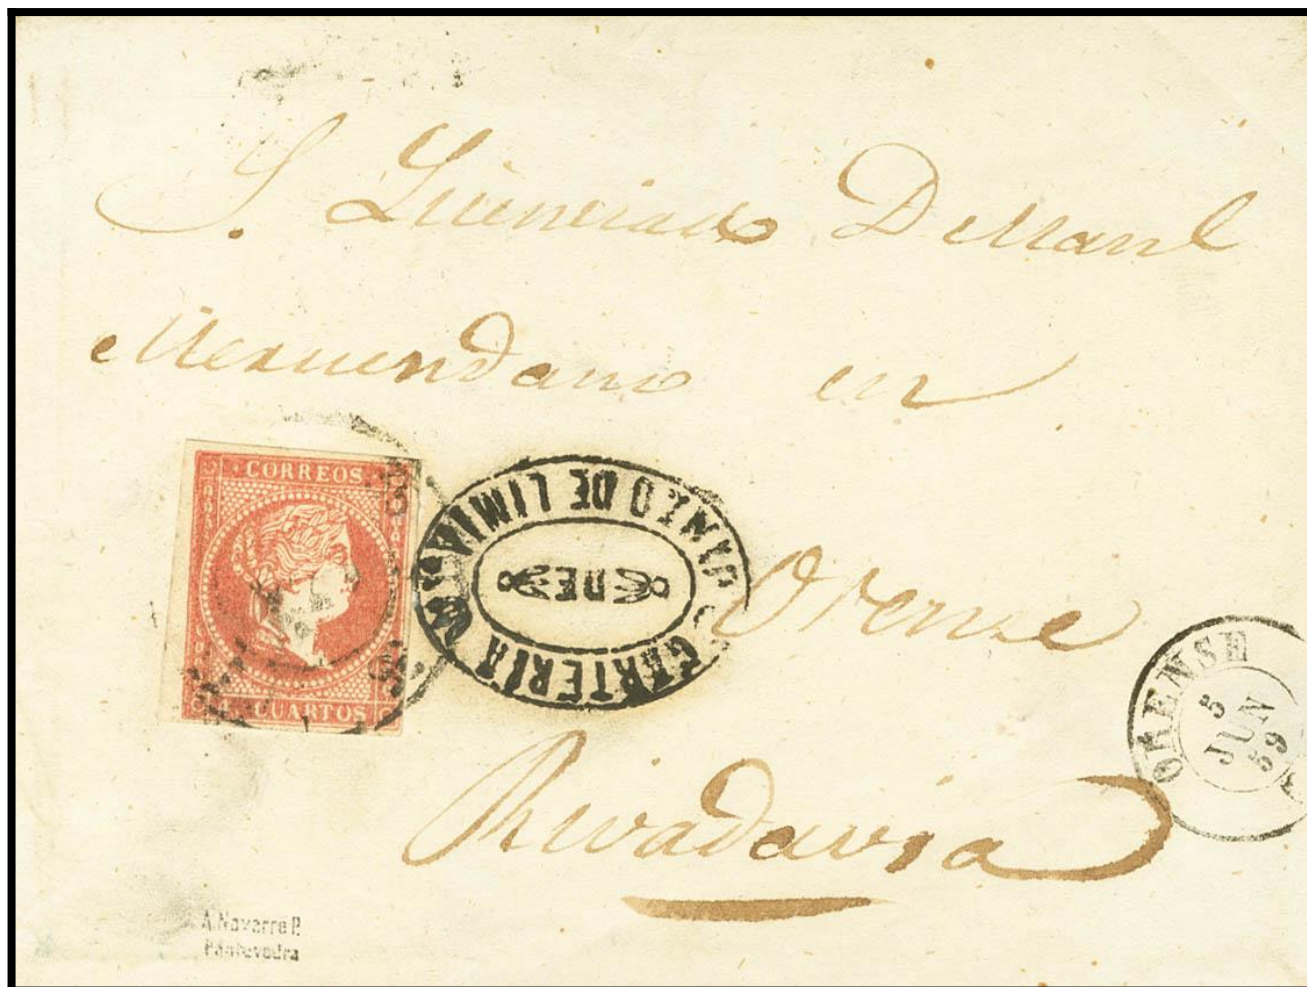 S. Licenciado D Manl
Meruendano en
CORREOS
CUARTOS
CARTERIA
DE
DE LIMIA
Orense
ORENSE
5
JUN
59
Rivadavia
A.Navarro P.
Pontevedra